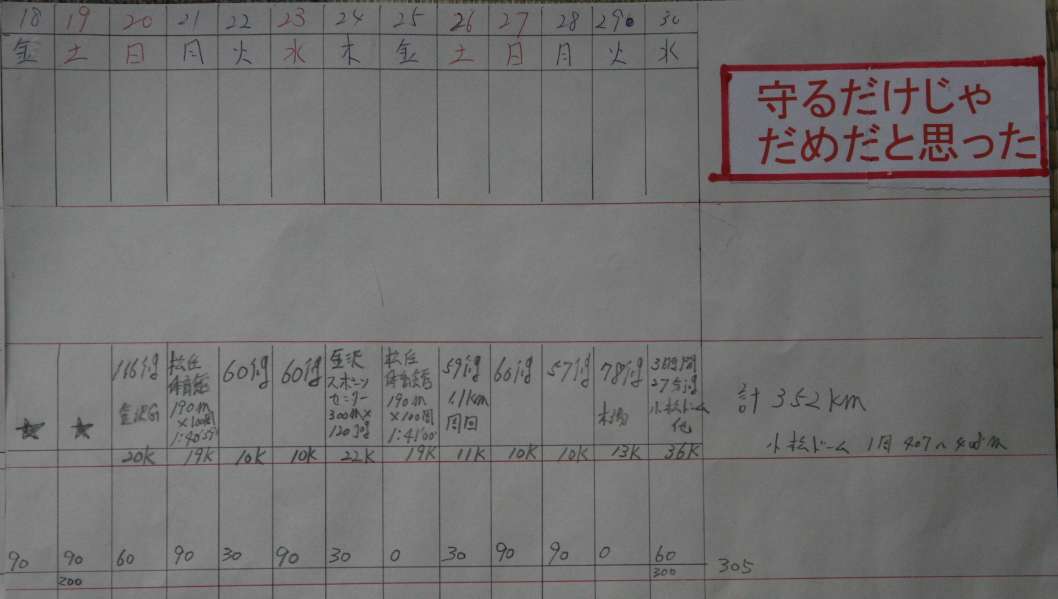 18 19 20 21 22 23 24 25 26 27 28 29 30
金 土 日 月 火 水 木 金 土 日 月 火 水
守るだけじゃ
だめだと思った
★ ★
116分jg
金沢G
松任
体育館
190m
×100周
1:40'59"
60分jg
60分jg
金沢
スポーツ
センター
300m×
120jog
松任
体育館
190m
×100周
1:41'00"
59分jg
1.1km
周回
60分jg
57分jg
78分jg
木場
3時間
27分jg
小松ドーム
他
20K 19K 10K 10K 22K 19K 11K 10K 10K 13K 36K
計 352km
小松ドーム 1周 407~408m
90 90 60 90 30 90 30 0 30 90 90 0 60
200 300
305